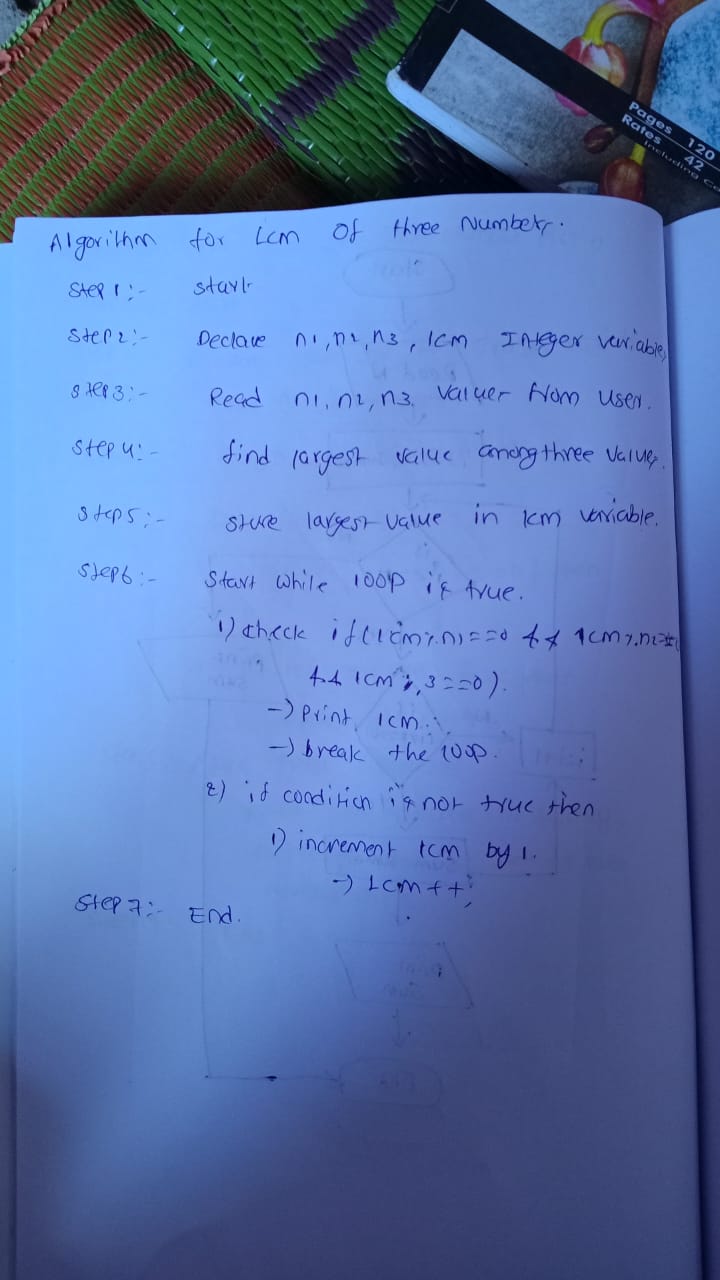 Pages 120
Rates 42
Including
Algorithm for Lcm Of three Numbers.
Step 1:- start
Step 2:- Declare n1, n2, n3, lcm Integer variables
Step 3:- Read n1, n2, n3 values from user.
Step 4:- find largest value among three values.
Step 5:- store largest value in lcm variable.
Step 6:- Start while loop is true.
1) check if(lcm%n1==0 && lcm%n2==0
&& lcm%3==0).
-> print lcm.
-> break the loop.
2) if condition is not true then
1) increment lcm by 1.
-> Lcm++;
Step 7:- End.